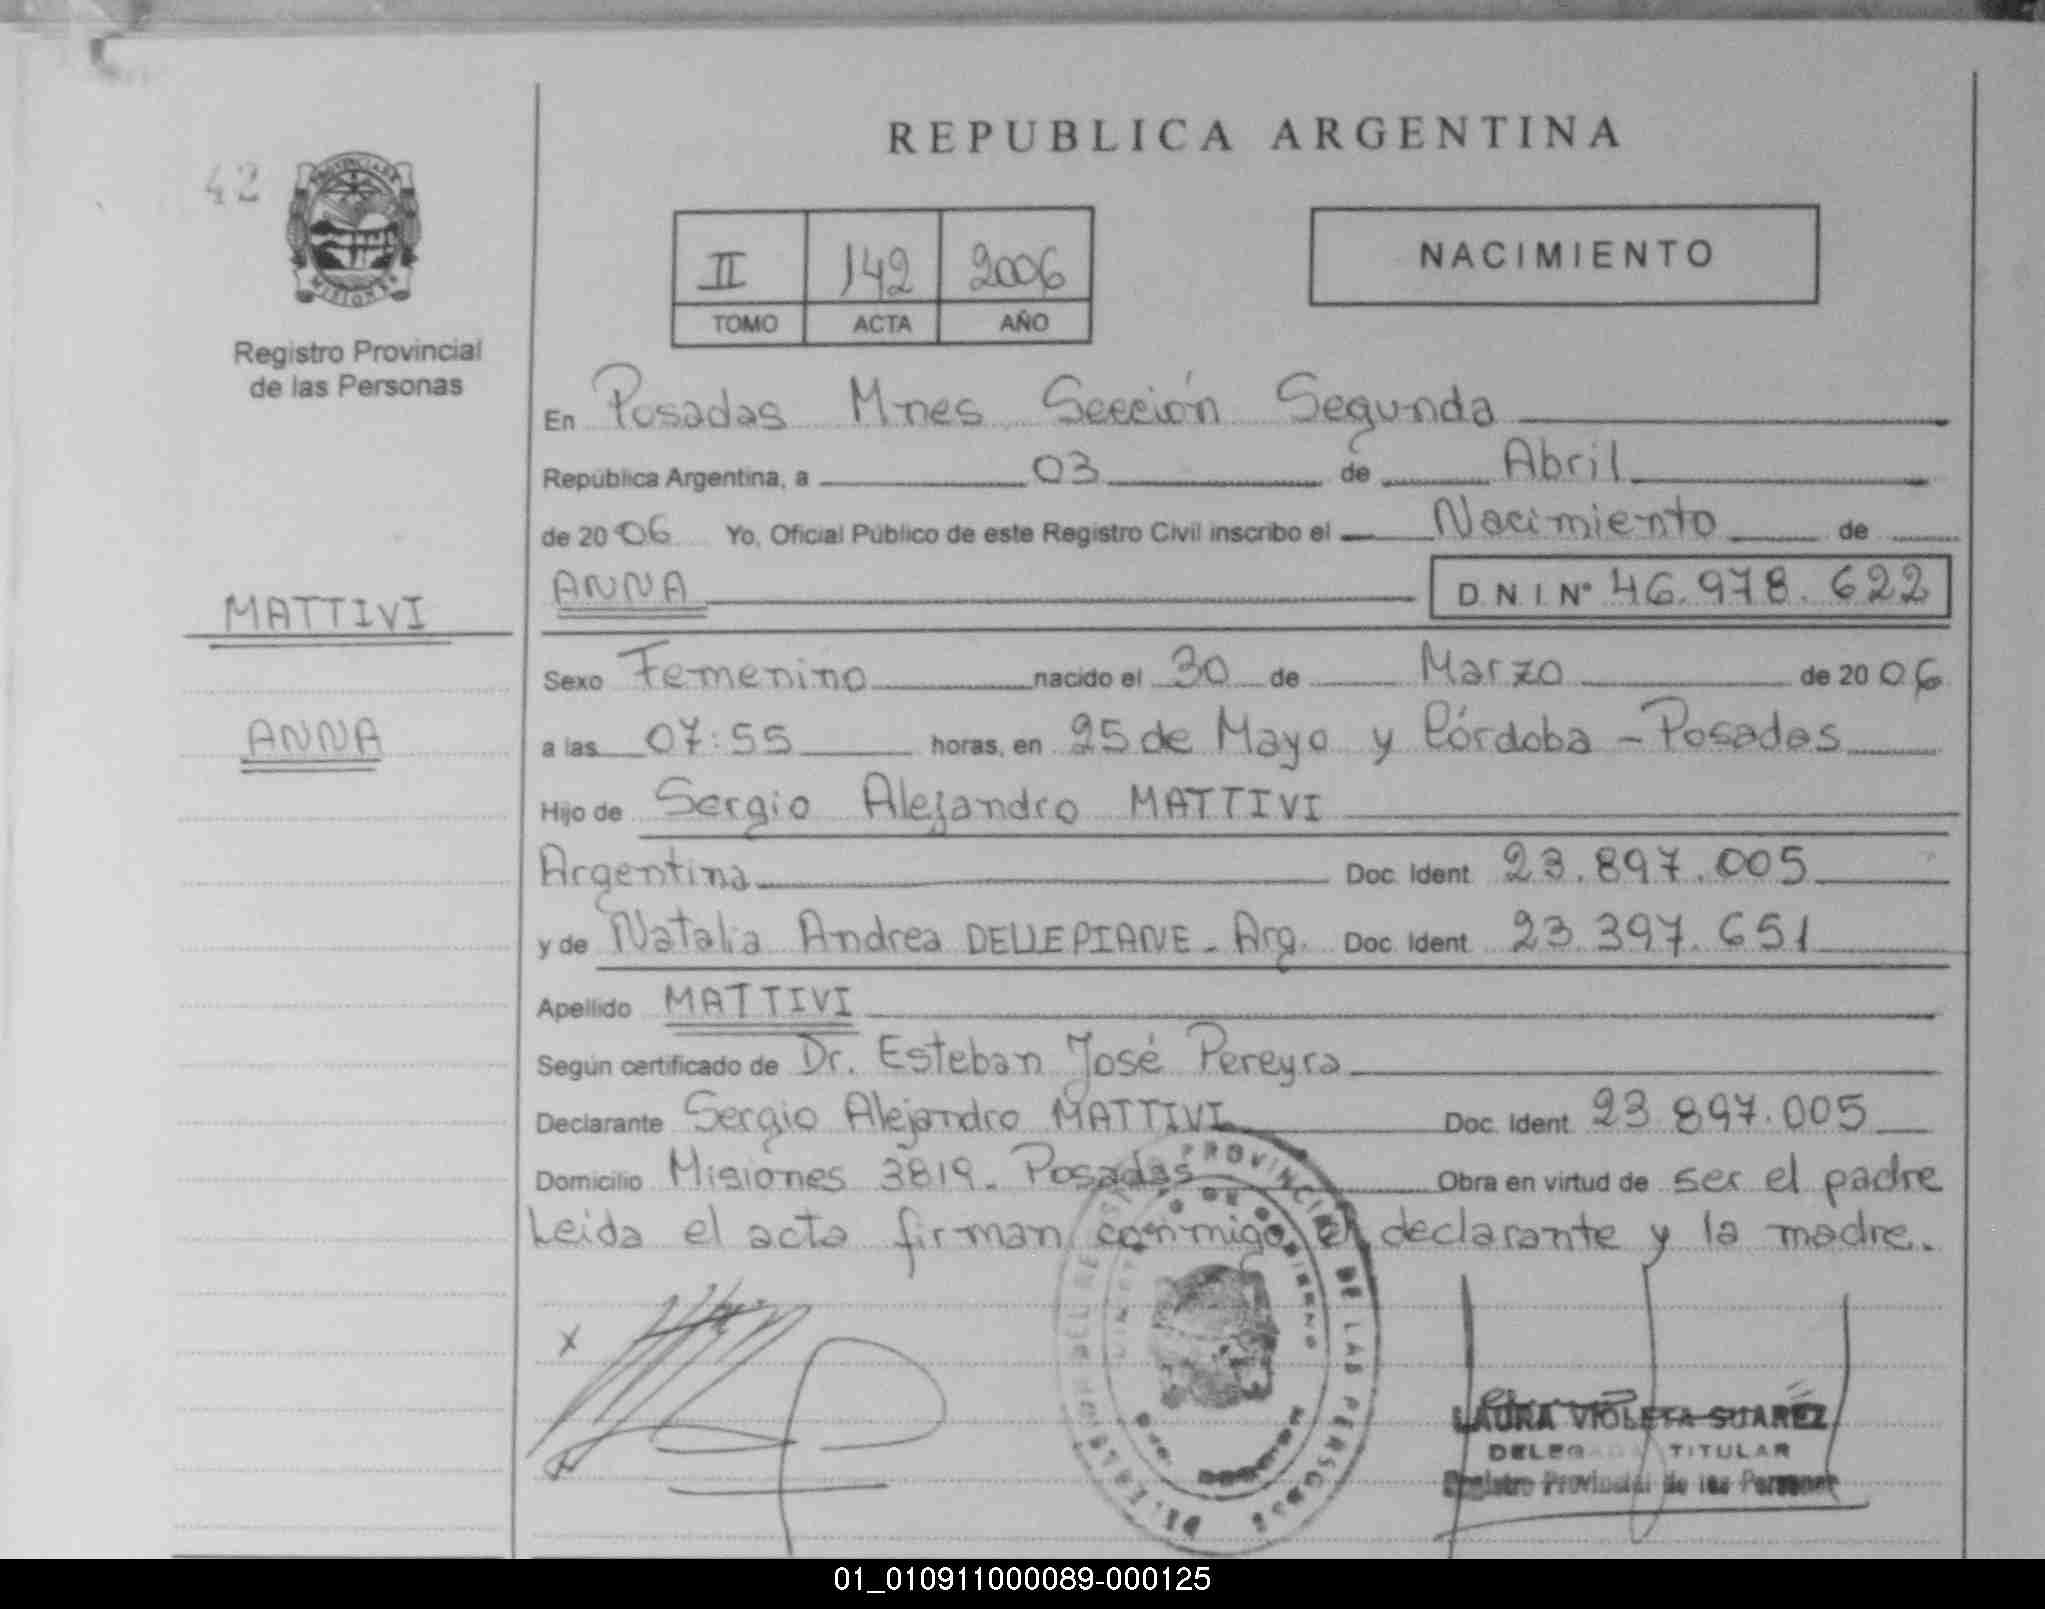 REPUBLICA ARGENTINA
42
PROVINCIA DE
MISIONES
Registro Provincial
de las Personas
II 142 2006
TOMO ACTA AÑO
NACIMIENTO
En Posadas Mnes Sección Segunda
República Argentina, a 03 de Abril
de 2006 Yo, Oficial Público de este Registro Civil inscribo el Nacimiento de
ANNA D.N.I. Nº 46.978.622
MATTIVI
ANNA
Sexo Femenino nacido el 30 de Marzo de 2006
a las 07:55 horas, en 25 de Mayo y Córdoba - Posadas
Hijo de Sergio Alejandro MATTIVI
Argentina Doc. Ident. 23.897.005
y de Natalia Andrea DELLEPIANE - Arg. Doc. Ident. 23.397.651
Apellido MATTIVI
Según certificado de Dr. Esteban José Pereyra
Declarante Sergio Alejandro MATTIVI Doc. Ident. 23.897.005
Domicilio Misiones 3819. Posadas Obra en virtud de ser el padre
Leida el acta firman conmigo el declarante y la madre.
X
PROVINCIAL DE LAS PERSONAS
DE GOBIERNO
LAURA VIOLETA SUAREZ
DELEGADA TITULAR
Registro Provincial de las Personas
01_010911000089-000125